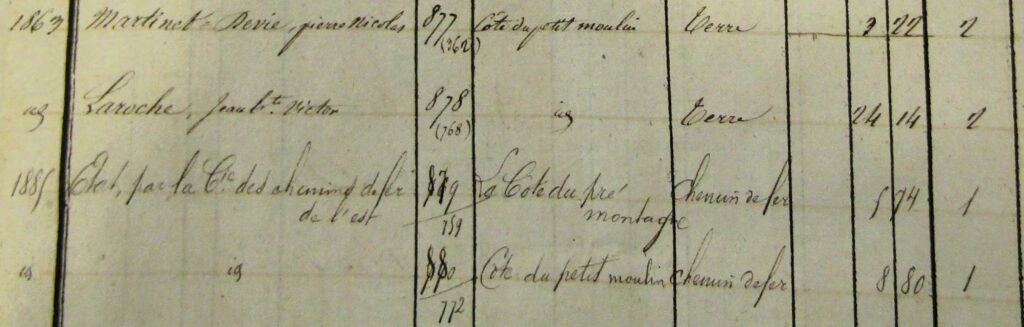 1863 Martinet Devie, pierre Nicolas 877 Côte du petit moulin Terre 3 22 2
(962)
id Laroche, Jean Bte Victor 878 id Terre 24 14 2
(768)
1885 Etat, par la Cie des chemins de fer 879 La Côte du pré Chemin de fer 5 74 1
de l'est 759 montagne
id id 880 Côte du petit moulin Chemin de fer 8 80 1
772